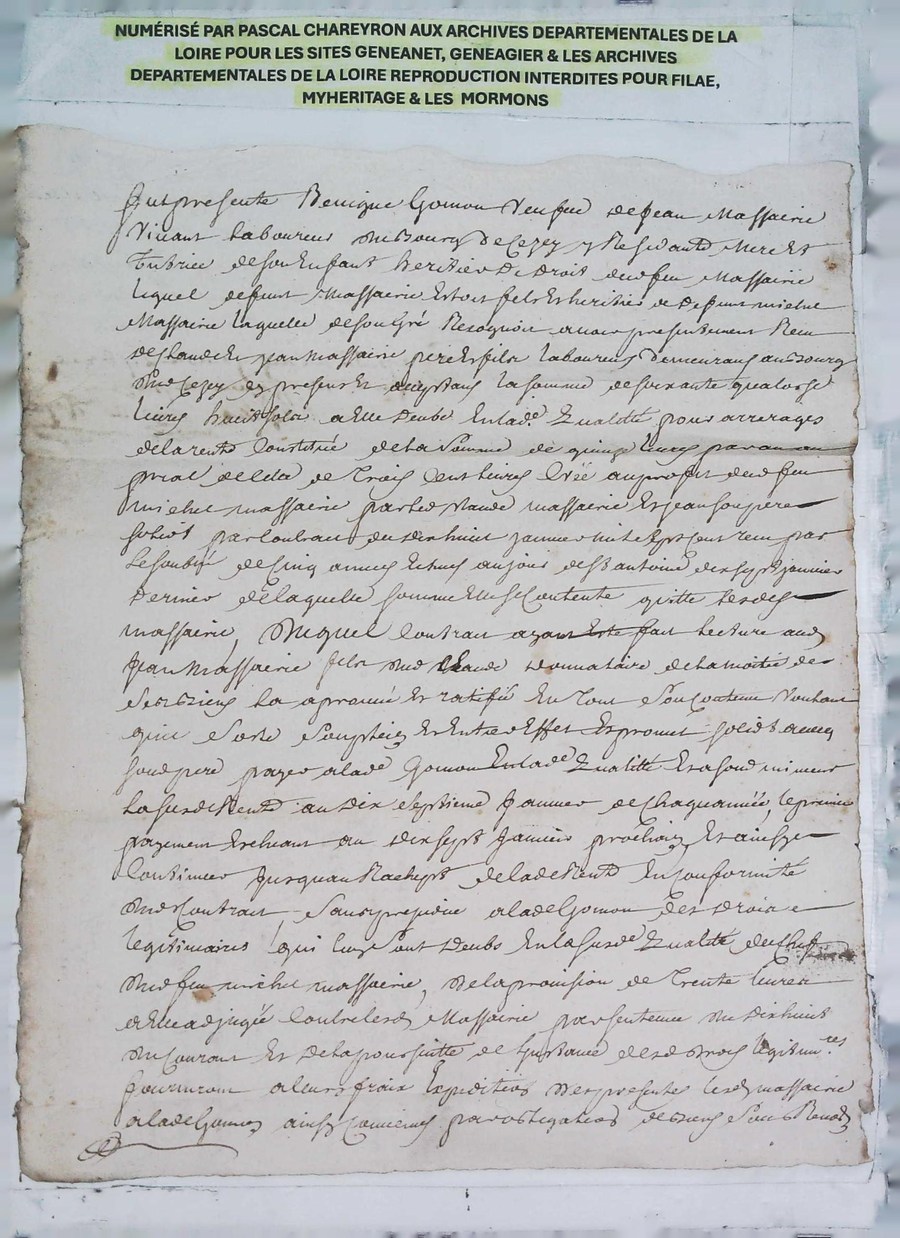 NUMÉRISÉ PAR PASCAL CHAREYRON AUX ARCHIVES DEPARTEMENTALES DE LA
LOIRE POUR LES SITES GENEANET, GENEAGIER & LES ARCHIVES
DEPARTEMENTALES DE LA LOIRE REPRODUCTION INTERDITES POUR FILAE,
MYHERITAGE & LES MORMONS
fut presente Benigne Gomon veufve de Jean Massairie
vivant laboureur du Bourg de Cezey y Residante Mere et
tutrice de son Enfant heritier de droit dud feu Massairie
lequel defunt Massairie Estoit fils Et heritier de defunt michel
Massairie laquelle de son Gré Recognoit avoir presentement Receu
de Claude Et Jean Massairie pere Et fils laboureurs demeurans au Bourg
dud Cezey presens Et la somme de soixante quatorze
livres huit sols a Elle deube En lade qualitté pour arrerages
de la rente Constitué de la somme de quinze livres par an au
de de trois Cent livres Créé au profit dud feu
michel massairie par led Claude massairie Et Jean son pere
solid par Contrat du dix huit janvier mil sept cent receu par
le soubné de cinq années Echues au jour de St antoine dix sept janvier
dernier de laquelle somme Elle se Contente quitte lesds
massairie, Duquel Contrat ayant Esté fait lecture aud
Jean Massairie fils dud Claude donnataire de la moitié de
ses Biens la aprouvé Et ratiffié En tout son Contenu voulant
quil sorte son plein Et Entier Effet Et promet solidt avec
sond pere payer a lade Gomon En lade qualitté Et a sond mineur
la susde Rente au dix septieme Janvier de Chaque année, le premier
payement Echeant au dix sept Janvier prochain Et ainsy
Continuer jusquau Rachapt de lade Rente En Conformité
dud Contrat sans prejudice a lade Gomon des droits
legitimaires qui luy sont deubs En la susde qualité du Chef
dud feu michel massairie, de la provision de trente livres
a Elle adjugée Contre lesds Massairie par sentence du dix huit
du Courant Et de la poursuitte de desd droits legitimres
fourniront a leurs frais Expedition des presentes lesds massairie
a lade Gomon ainsy Convenu par obligation de biens sous